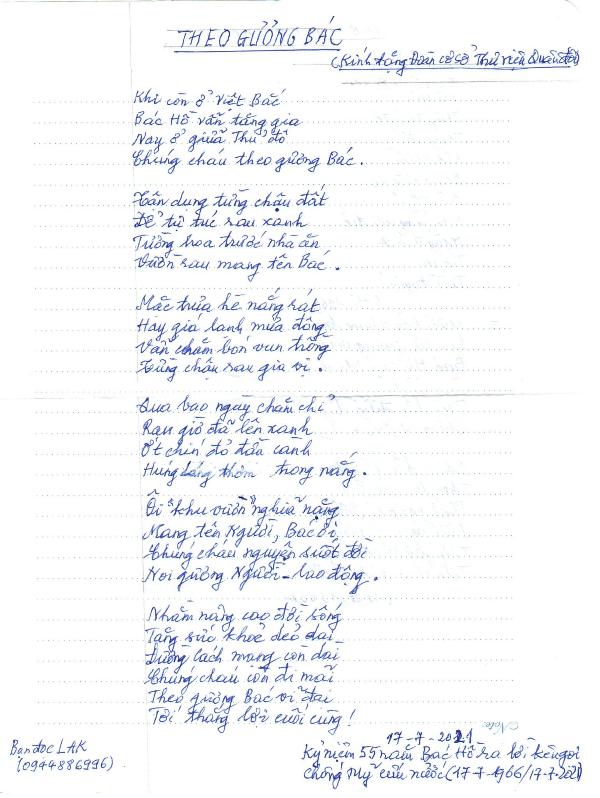 THEO GƯỞNG BÁC
(Kính tặng Đoàn cơ sở Thư viện Quân đội)
Khi còn ở Việt Bắc
Bác Hồ vẫn tăng gia
Nay ở giữa Thủ đô
Chúng cháu theo gương Bác.
Tận dụng từng chậu đất
Để tự túc rau xanh
Tưởng hoa trước nhà ăn
Vườn rau mang tên Bác.
Mặc trưa hè nắng rát
Hay giá lạnh mùa đông
Vẫn chăm bón vun trồng
Từng chậu rau gia vị.
Qua bao ngày chăm chỉ
Rau giờ đã lên xanh
Ớt chín đỏ đầu cành
Húng láng thơm trong nắng.
Ôi "khu vườn" nghĩa nặng
Mang tên Người, Bác ơi
Chúng cháu nguyện suốt đời
Noi gương Người - lao động.
Nhằm nâng cao đời sống
Tăng sức khoẻ dẻo dai
Đường cách mạng còn dài
Chúng cháu còn đi mãi
Theo gương Bác vĩ đại
Tới thắng lợi cuối cùng!
Note:
17-7-2021
Bạn đọc LAK
(0944886996)
Kỷ niệm 55 năm Bác Hồ ra lời kêu gọi
chống Mỹ cứu nước (17-7-1966/17-7-2021)